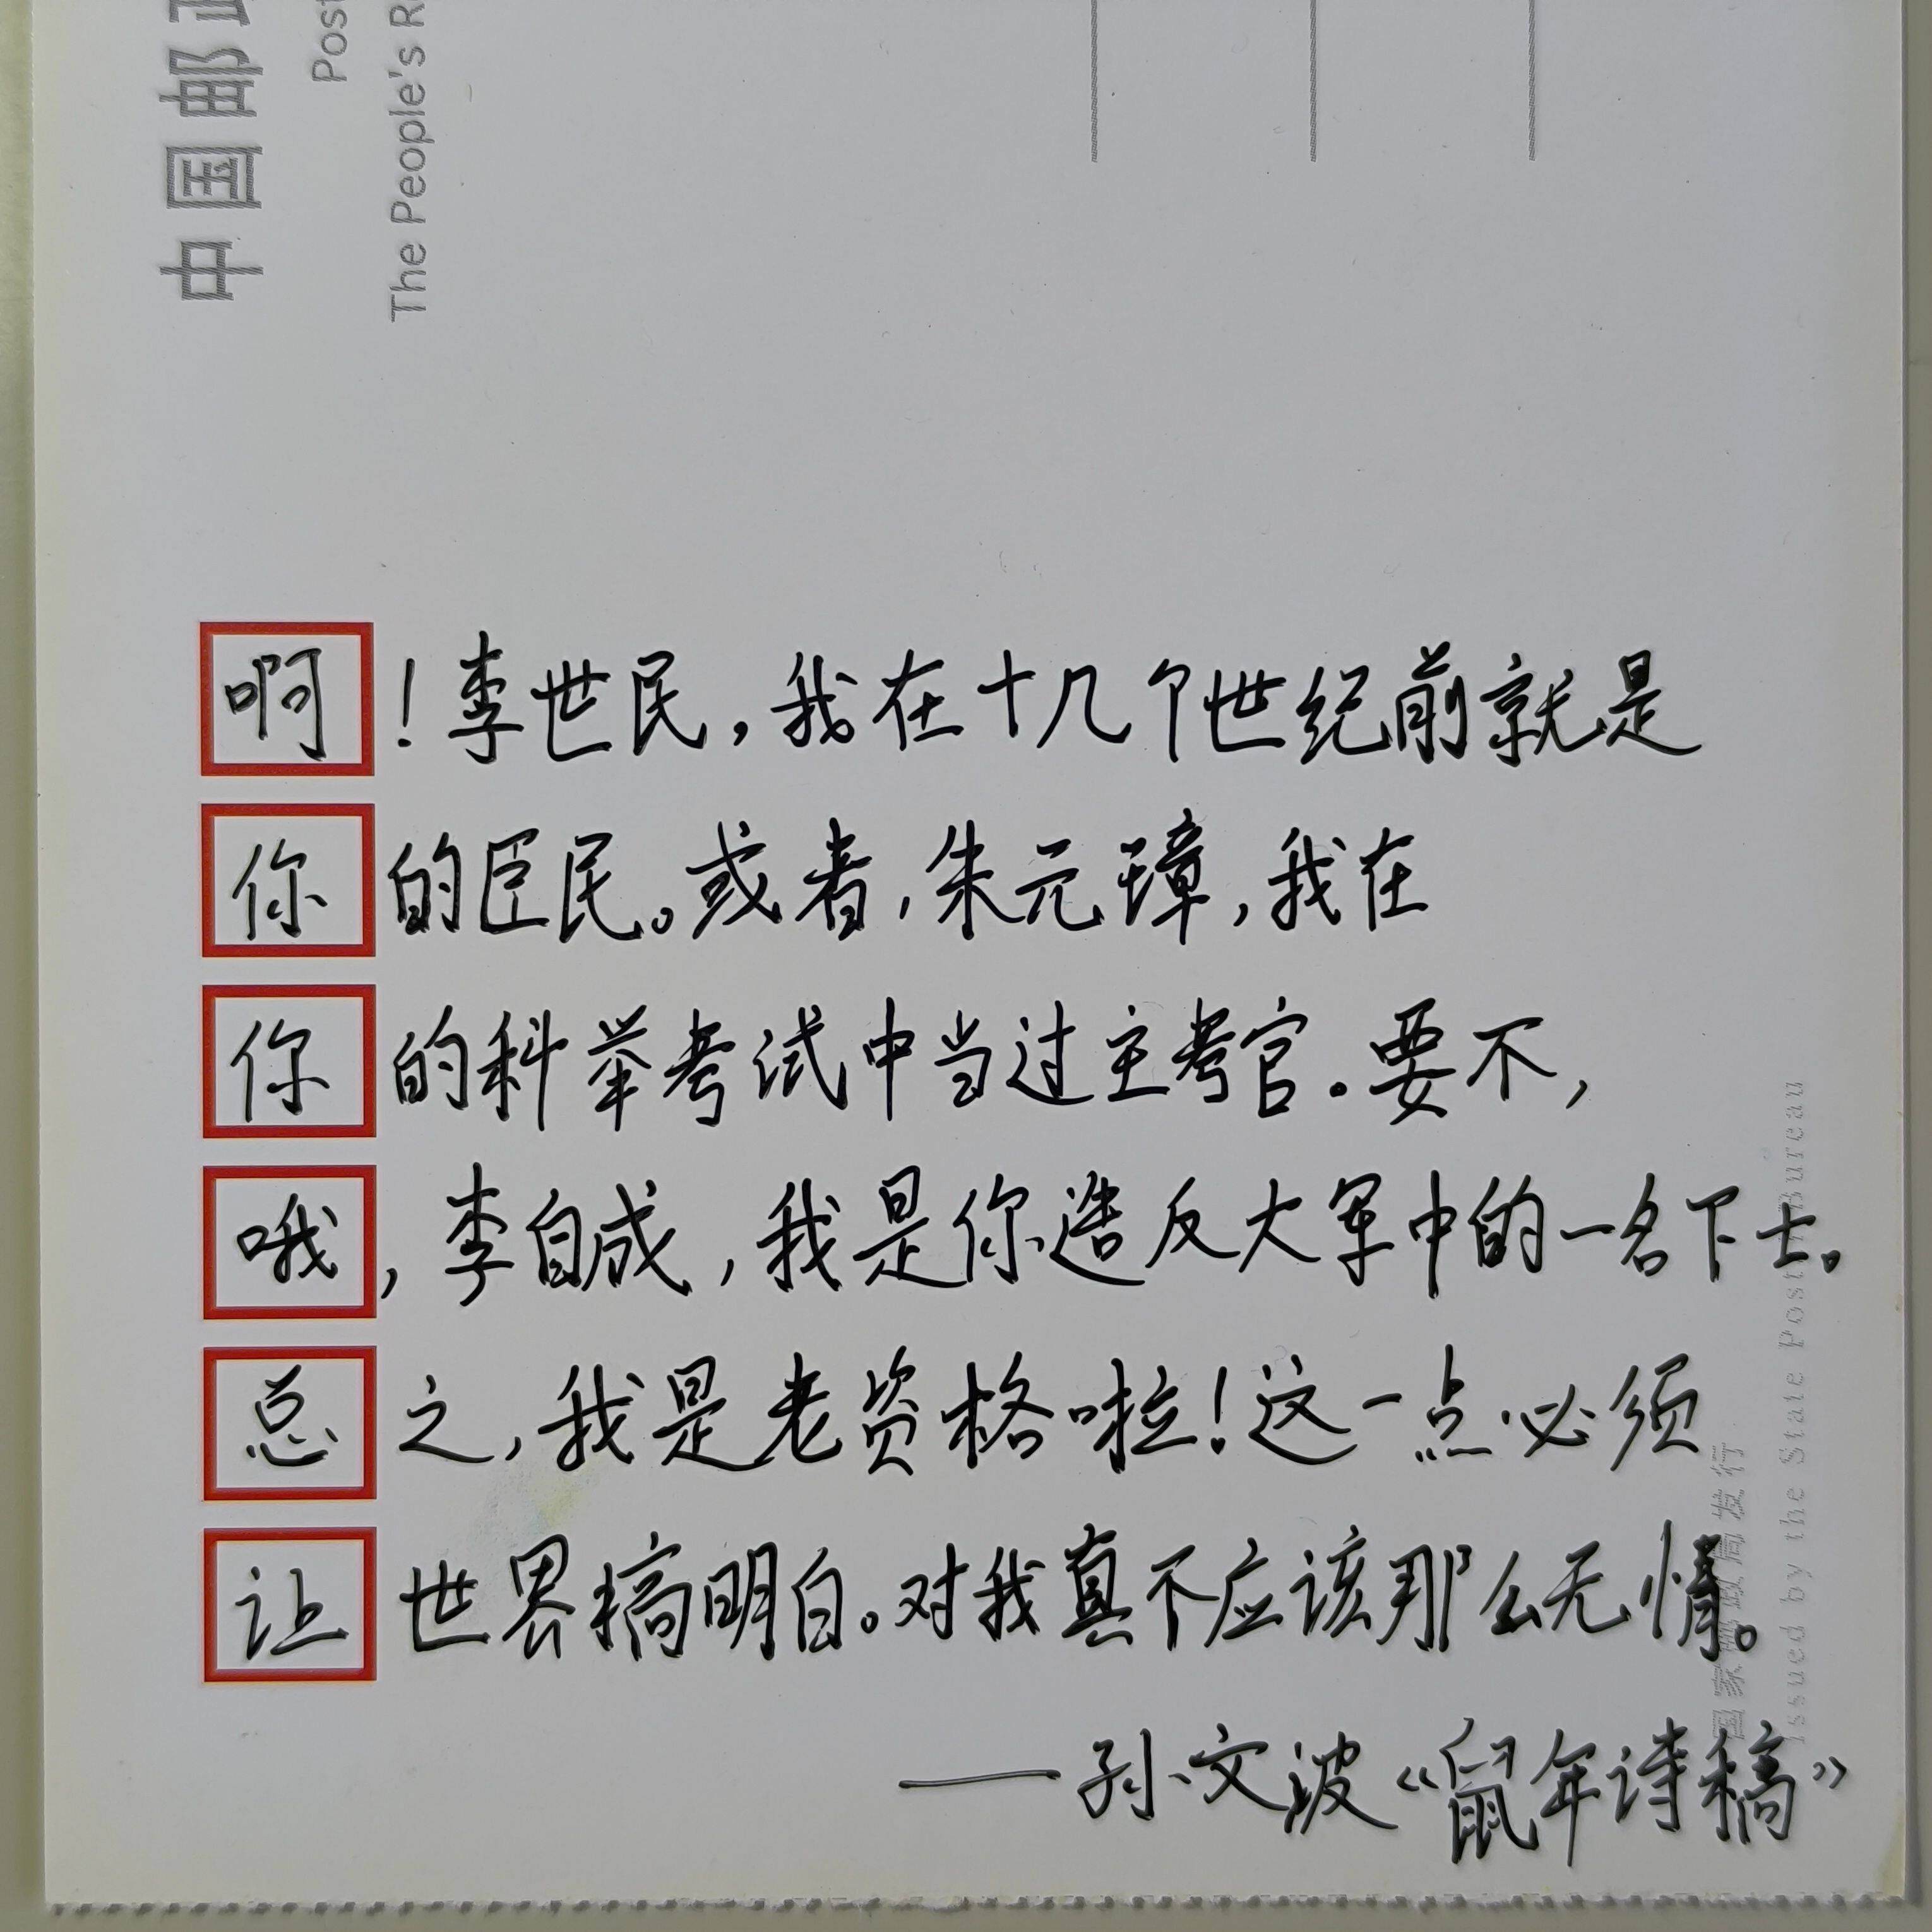 中国邮政
Post
The People's R
啊！李世民，我在十几个世纪前就是
你的臣民。或者，朱元璋，我在
你的科举考试中当过主考官。要不，
哦，李自成，我是你造反大军中的一名下士。
总之，我是老资格啦！这一点必须
让世界搞明白。对我真不应该那么无情。
——孙文波《鼠年诗稿》
国家邮政局发行
Issued by the State Post Bureau